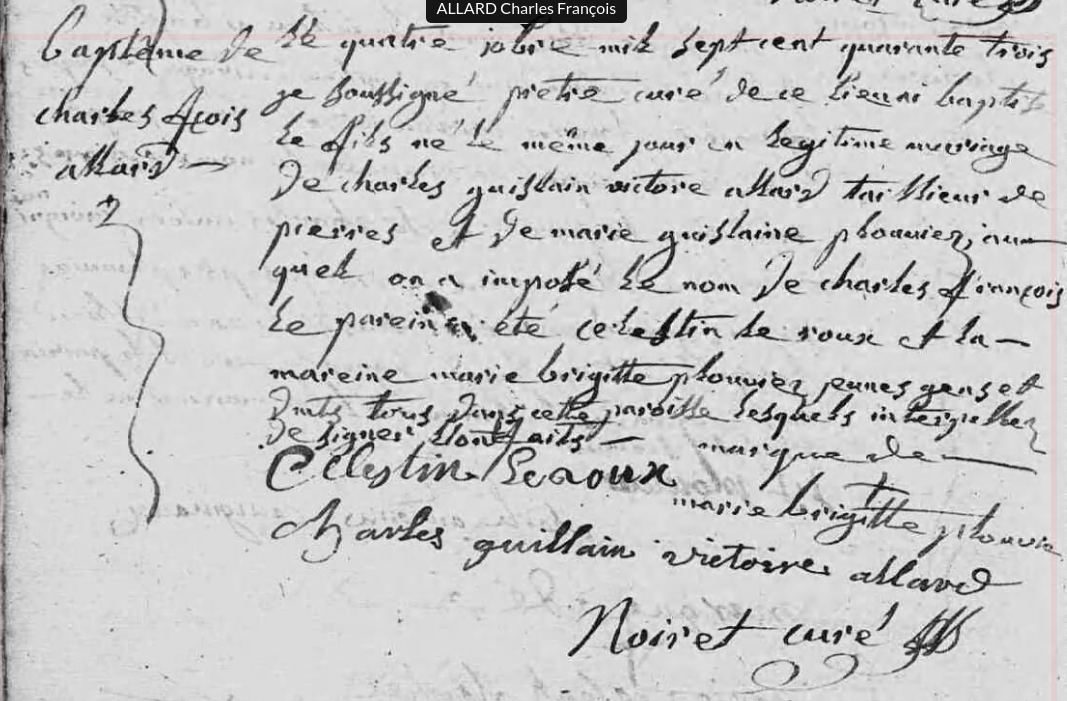 ALLARD Charles François
Baptême de
charles fçois
allard
Le quatre jobre mil sept cent quarante trois
je soussigné prêtre curé de ce lieu ai baptisé
le fils né le même jour en legitime mariage
de charles guislain victore allard taillieur de
pierres et de marie guislaine plouviez, au
quel on a imposé le nom de charles françois
le parein a été celestin le roux et la
mareine marie brigitte plouviez jeunes gens et
tous dans cette paroisse lesquels interpellez
de signer l'ont faits
marque de
Celestin Leroux
marie brigitte plouvie
Charles guillain victoire allard
Noiret curé